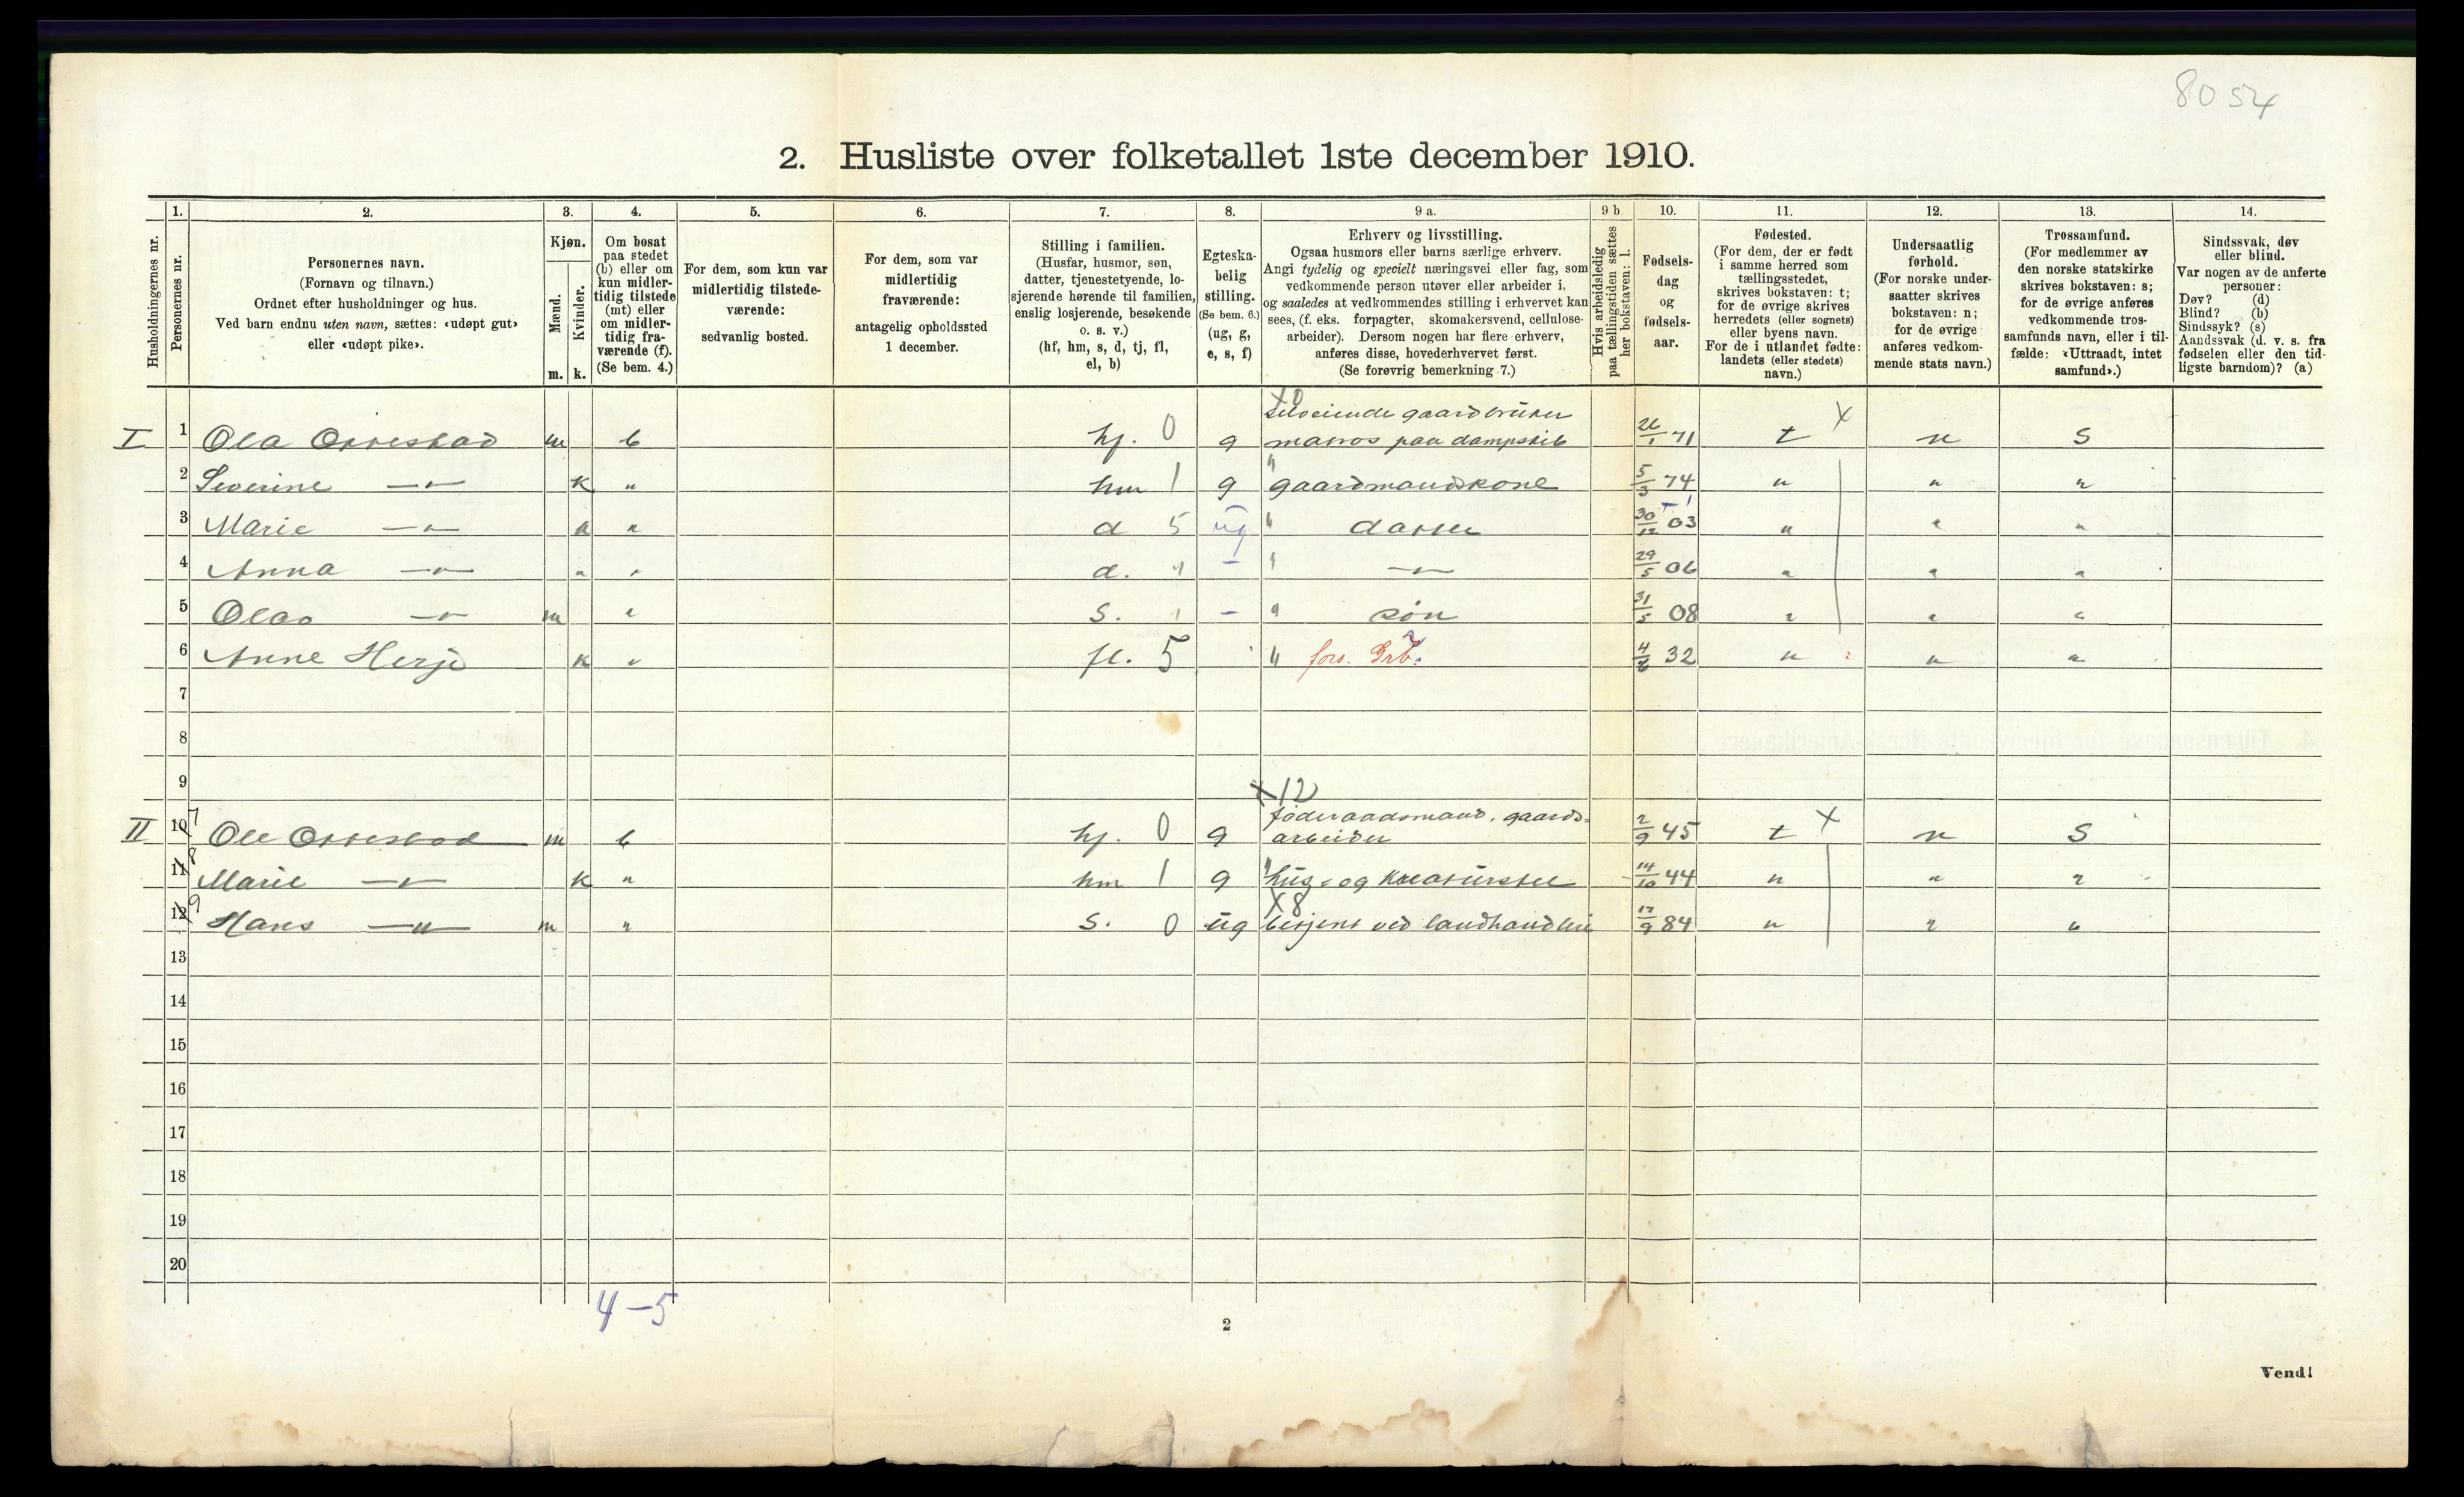 8054
2. Husliste over folketallet 1ste december 1910.
Husholdningernes nr.
1.
Personernes nr.
2.
Personernes navn.
(Fornavn og tilnavn.)
Ordnet efter husholdninger og hus.
Ved barn endnu uten navn, sættes: «udøpt gut»
eller «udøpt pike».
3.
Kjøn.
Mænd.
Kvinder.
m. k.
4.
Om bosat
paa stedet
(b) eller om
kun midler-
tidig tilstede
(mt) eller
om midler-
tidig fra-
værende (f).
(Se bem. 4.)
5.
For dem, som kun var
midlertidig tilstede-
værende:
sedvanlig bosted.
6.
For dem, som var
midlertidig
fraværende:
antagelig opholdssted
1 december.
7.
Stilling i familien.
(Husfar, husmor, søn,
datter, tjenestetyende, lo-
sjerende hørende til familien,
enslig losjerende, besøkende
o. s. v.)
(hf, hm, s, d, tj, fl,
el, b)
8.
Egteska-
belig
stilling.
(Se bem. 6.)
(ug, g,
e, s, f)
9 a.
Erhverv og livsstilling.
Ogsaa husmors eller barns særlige erhverv.
Angi tydelig og specielt næringsvei eller fag, som
vedkommende person utøver eller arbeider i,
og saaledes at vedkommendes stilling i erhvervet kan
sees, (f. eks. forpagter, skomakersvend, cellulose-
arbeider). Dersom nogen har flere erhverv,
anføres disse, hovederhvervet først.
(Se forøvrig bemerkning 7.)
9 b
Hvis arbeidsledig
paa tællingstiden sættes
her bokstaven: l.
10.
Fødsels-
dag
og
fødsels-
aar.
11.
Fødested.
(For dem, der er født
i samme herred som
tællingsstedet,
skrives bokstaven: t;
for de øvrige skrives
herredets (eller sognets)
eller byens navn.
For de i utlandet fødte:
landets (eller stedets)
navn.)
12.
Undersaatlig
forhold.
(For norske under-
saatter skrives
bokstaven: n;
for de øvrige
anføres vedkom-
mende stats navn.)
13.
Trossamfund.
(For medlemmer av
den norske statskirke
skrives bokstaven: s;
for de øvrige anføres
vedkommende tros-
samfunds navn, eller i til-
fælde: «Uttraadt, intet
samfund».)
14.
Sindssvak, døv
eller blind.
Var nogen av de anførte
personer:
Døv? (d)
Blind? (b)
Sindssyk? (s)
Aandssvak (d. v. s. fra
fødselen eller den tid-
ligste barndom)? (a)
X0
selveiende gaardbruker
I 1 Ola Orrestad m b hf. 0 g matros paa dampskib 26/1 71 t X n S
2 Severine —„— k „ hm 1 g " gaardmandskone 5/3 74 „ „ „
3 Marie —„— „ „ d 5 ug " datter 30/12 03 „ „ „
4 Anna —„— „ „ d. " – " —„— 29/5 06 „ „ „
5 Olav —„— m „ s. " – " søn 31/5 08 „ „ „
6 Anne Herje k „ fl. 5 " fors. Grb. 4/6 32 „ „ „
7
8
9
X 12
føderaadsmand, gaards-
II 10 7 Ole Orrestad m b hf. 0 g arbeider 2/9 45 t X n S
11 8 Marie —„— k „ hm 1 g " hus- og kreaturstel 14/10 44 „ „ „
X8
12 9 Hans —„— m „ s. 0 ug betjent ved landhandleri 17/9 84 „ „ „
13
14
15
16
17
18
19
20
4–5
2
Vend!